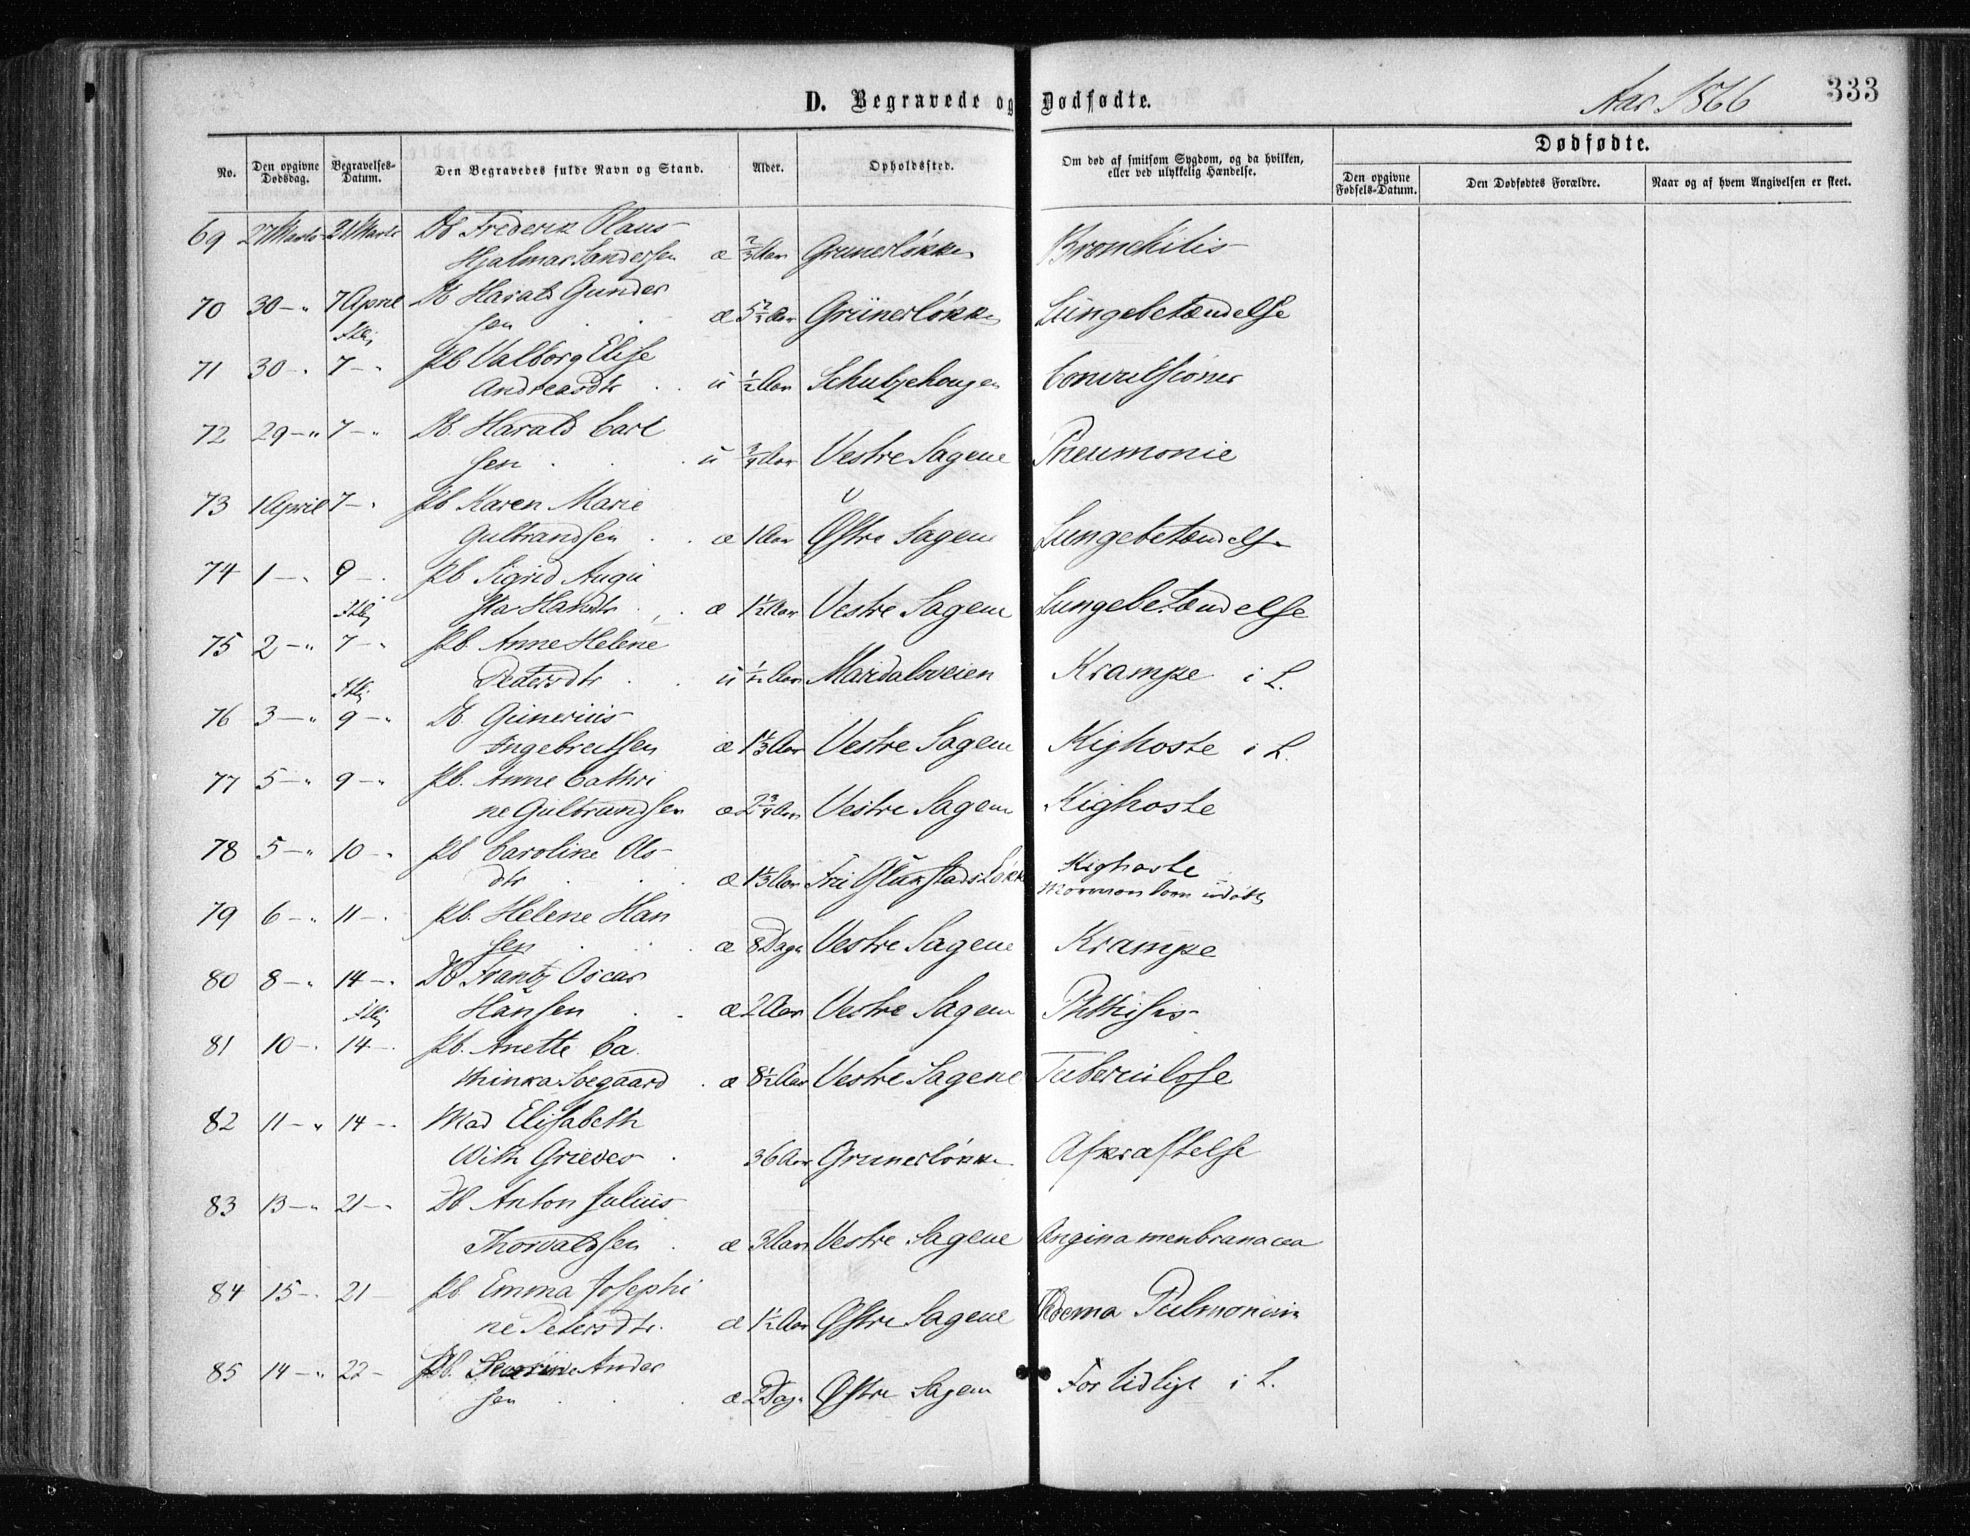 D. Begravede og Dødfødte.
Aar 1866
333
No.
Den opgivne Dødsdag.
Begravelses-Datum.
Den Begravedes fulde Navn og Stand.
Alder.
Opholdssted.
Om død af smitsom Sygdom, og da hvilken, eller ved ulykkelig Hændelse.
Dødfødte.
Den opgivne Fødsels-Datum.
Den Dødfødtes Forældre.
Naar og af hvem Angivelsen er skeet.
69 27 Marts Marts Db Frederik Olaus
Hjalmar Sandersen æ 2/3 Aar Grunerløkken Bronchitis
70 30 — " 7 April Db Harald Gunder
sen æ 5 Aar Grünerløkken Lungebetændelse
71 30 — " 7 — " Pb Valborg Elise
Andreasdtr u 1/2 Aar Schultzehaugen Convulsioner
72 29 — " 7 — " Db. Harald Carl
sen u 3/4 Aar Vestre Sagene Pneumonie
73 1 April 7 — " Pb Karen Marie
Gulbrandsen æ 1 Aar Østre Sagene Lungebetændelse
74 1 — " 9 — " Pb Sigrid Augu
sta Hansdtr æ 1 1/2 Aar Vestre Sagene Lungebetændelse
75 2 — " 7 — " Pb. Anne Helene
Petersdtr u Aar Maridalsveien Krampe i L.
76 3 — " 9 — " Db Gunerius
Ingebretsen æ 1 1/3 Aar Vestre Sagene Kighoste i L.
77 5 — " 9 — " Pb. Anne Cathri
ne Gulbrandsen æ 2 3/4 Aar Vestre Sagene Kighoste
78 5 — " 10 — " Pb Caroline Ols-
dtr æ 1 1/3 Aar Fru Glukstads Løkke Kighoste
Mormon barn udøbt
79 6 — " 11 — " Pb. Helene Han
sen æ 8 Dage Vestre Sagene Krampe
80 8 — " 14 — " Db Frantz Oscar
Hansen æ 2 Aar Vestre Sagene Phthisis
81 10 — " 14 — " Pb. Anette Ca
thinka Soegaard æ 8 1/2 Aar Vestre Sagene Tuberculose
82 11 — " 14 — " Mad Elisabeth
With Grieves 36 Aar Grunerløkken Afkræftelse
83 13 — " 21 — " Db Anton Julius
Thorvaldsen æ 3 Aar Vestre Sagene Angina menbranacea
84 15 — " 21 — Pb Emma Josephi
ne Petersdtr. æ 1 1/2 Aar Østre Sagene Oedema Pulmonum
85 14 — " 22 — Pb. Severine Ander
sen æ 2 Dage Østre Sagene For tidligt i L.